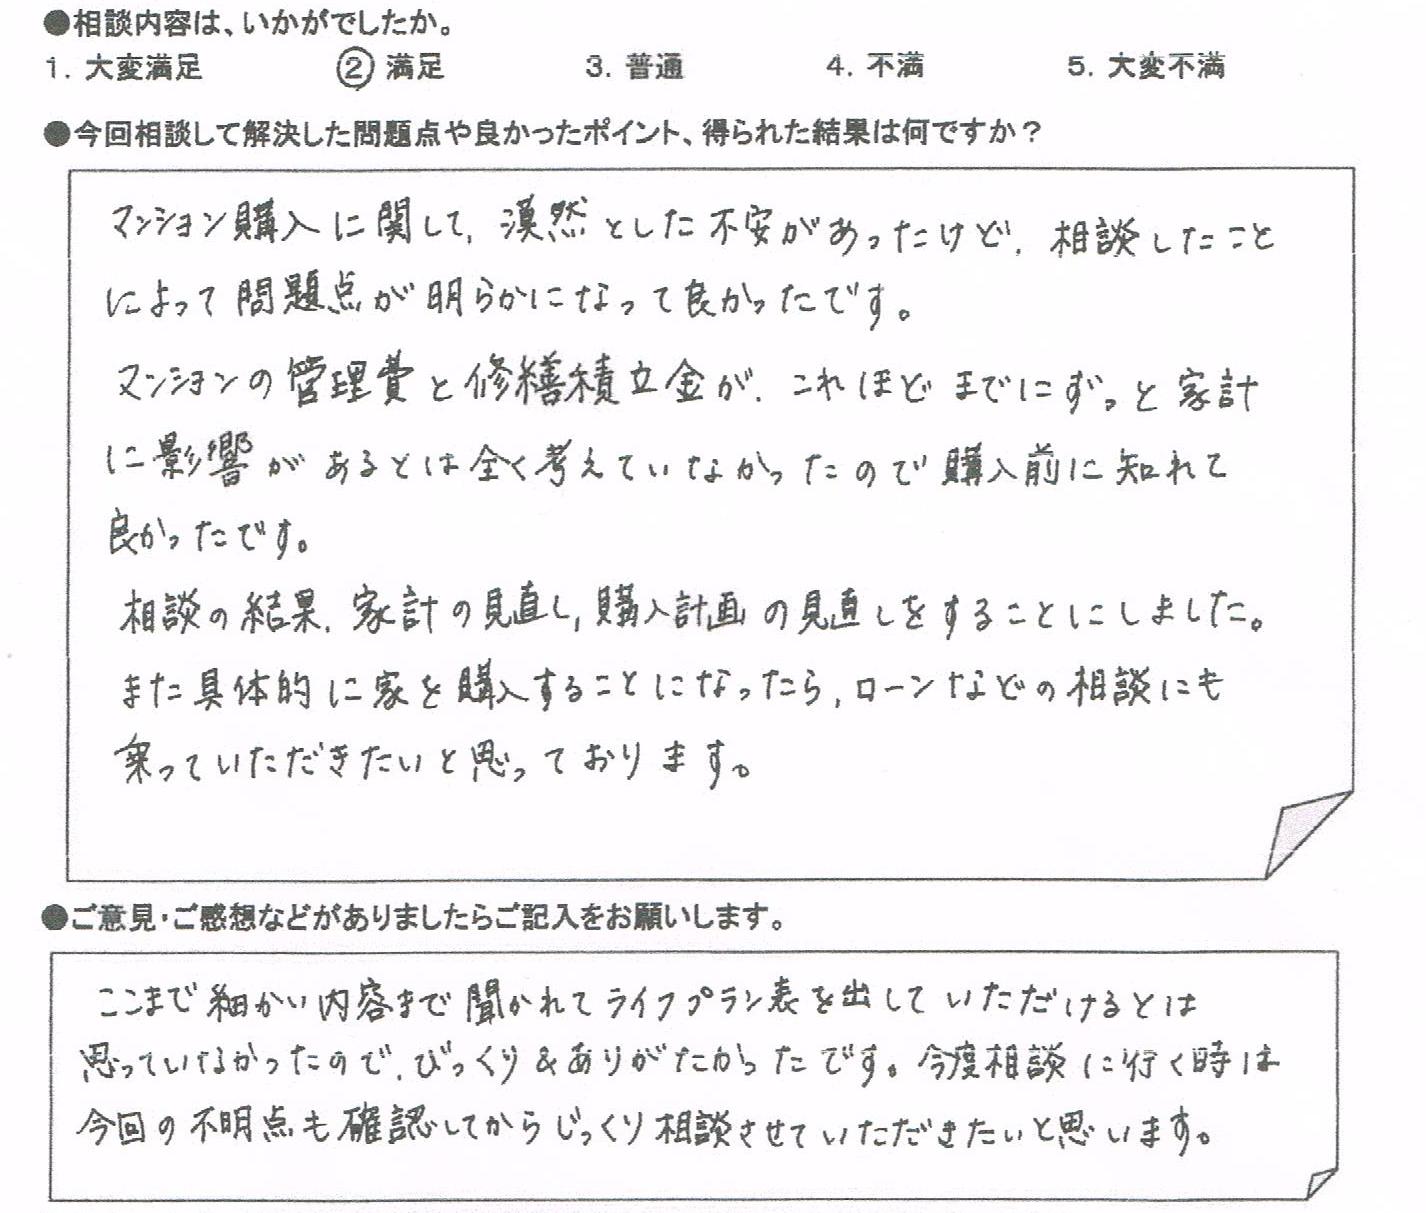 ●相談内容は、いかがでしたか。
1. 大変満足 ② 満足 3. 普通 4. 不満 5. 大変不満
●今回相談して解決した問題点や良かったポイント、得られた結果は何ですか？
マンション購入に関して、漠然とした不安があったけど、相談したこと
によって問題点が明らかになって良かったです。
マンションの管理費と修繕積立金が、これほどまでにずっと家計
に影響があるとは全く考えていなかったので購入前に知れて
良かったです。
相談の結果、家計の見直し、購入計画の見直しをすることにしました。
また具体的に家を購入することになったら、ローンなどの相談にも
乗っていただきたいと思っております。
●ご意見・ご感想などがありましたらご記入をお願いします。
ここまで細かい内容まで聞かれてライフプラン表を出していただけるとは
思っていなかったので、びっくり&ありがたかったです。今度相談に行く時は
今回の不明点も確認してからじっくり相談させていただきたいと思います。